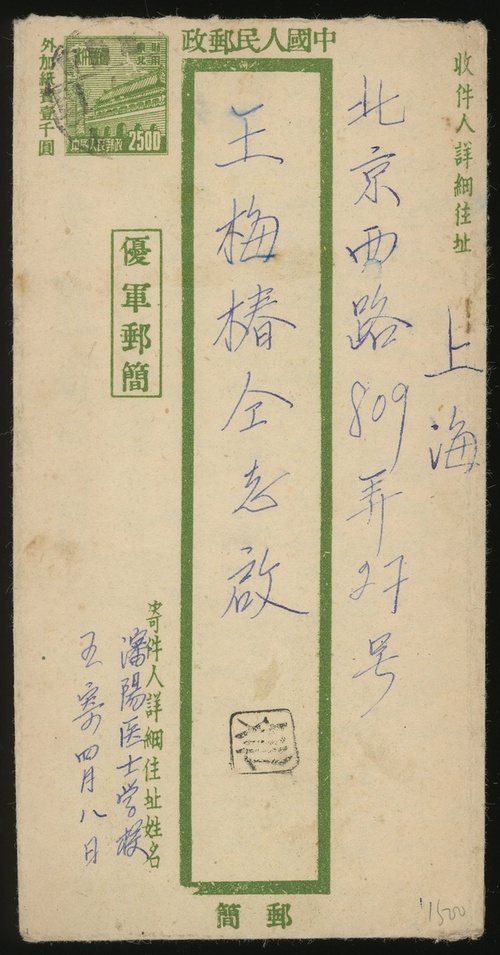 中國人民郵政
收件人詳細住址
上海
北京西路809弄27号
王梅椿仝志啟
外加紙費壹千圓
中國人民郵政 2500
優軍郵簡
寄件人詳細住址姓名
瀋陽医士学校
王寄 四月八日
郵簡
1500